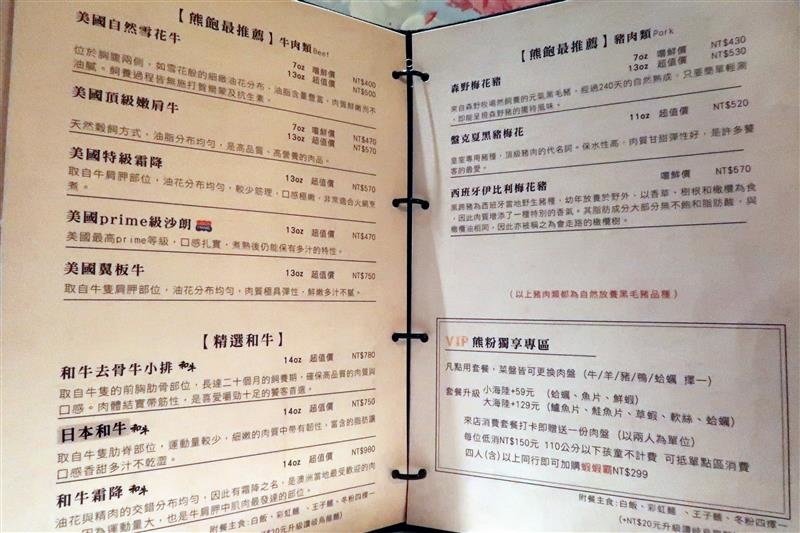 【熊飽最推薦】牛肉類Beef
美國自然雪花牛
7oz 嚐鮮價 NT$400
13oz 超值價 NT$500
位於胸腹兩側，如雪花般的細緻油花分布，油脂含量豐富，肉質鮮嫩而不
油膩。飼養過程皆無施打賀爾蒙及抗生素。
美國頂級嫩肩牛
7oz 嚐鮮價 NT$470
13oz 超值價 NT$570
天然穀飼方式，油脂分布均勻，是高品質、高營養的肉品。
美國特級霜降
13oz 超值價 NT$570
取自牛肩胛部位，油花分布均勻，較少筋理，口感極嫩，非常適合火鍋烹
煮。
美國prime級沙朗
13oz 超值價 NT$470
美國最高prime等級，口感扎實，煮熟後仍能保有多汁的特性。
美國翼板牛
13oz 超值價 NT$750
取自牛隻肩胛部位，油花分布均勻，肉質極具彈性，鮮嫩多汁不膩。
【精選和牛】
和牛去骨牛小排 和牛
14oz 超值價 NT$780
取自牛隻的前胸肋骨部位，長達二十個月的飼養期，確保高品質的肉質與
口感。肉體結實帶筋性，是喜愛嚼勁十足的饕客首選。
日本和牛 和牛
14oz 超值價 NT$750
取自牛隻肋脊部位，運動量較少，細嫩的肉質中帶有韌性，富含的脂肪讓
口感香甜多汁不乾澀。
和牛霜降 和牛
14oz 超值價 NT$980
油花與精肉的交錯分布均勻，因此有霜降之名，是澳洲當地最受歡迎的肉
因為運動量大，也是牛肩胛中肌肉最發達的部位。
附餐主食:白飯、彩虹麵、王子麵、冬粉四擇一
【熊飽最推薦】豬肉類Pork
森野梅花豬
7oz 嚐鮮價 NT$430
13oz 超值價 NT$530
來自森野牧場然飼養的元氣黑毛豬，經過240天的自然熟成，只要簡單輕涮
，即能呈現森野豬的獨特風味。
盤克夏黑豬梅花
11oz 超值價 NT$520
皇室專用豬種，頂級豬肉的代名詞。保水性高，肉質甘甜彈性好，是許多饕
客的最愛。
西班牙伊比利梅花豬
嚐鮮價 NT$570
黑蹄豬為西班牙當地野生豬種，幼年放養於野外，以香草、樹根和橄欖為食
，因此肉質增添了一種特別的香氣。其脂肪成分大部分無不飽和脂肪酸，與
橄欖油相同，因此亦被稱之為會走路的橄欖樹。
（以上豬肉類都為自然放養黑毛豬品種）
VIP 熊粉獨享專區
凡點用套餐，菜盤皆可更換肉盤（牛/羊/豬/鴨/蛤蠣 擇一）
套餐升級 小海陸+59元 （蛤蠣、魚片、鮮蝦）
大海陸+129元（鱸魚片、鮭魚片、草蝦、軟絲、蛤蠣）
來店消費套餐打卡即贈送一份肉盤（以兩人為單位）
每位低消NT$150元 110公分以下孩童不計費 可抵單點區消費
四人(含)以上同行即可加購蝦蝦霸NT$299
附餐主食:白飯、彩虹麵、王子麵、冬粉四擇一